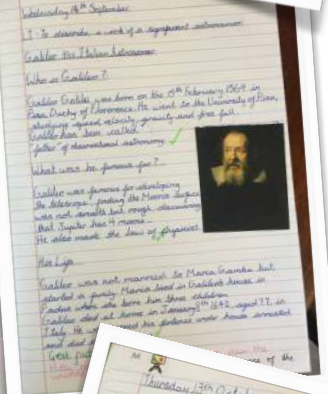 Wednesday 14th September
I - To describe a work of a significant astronomer
Galileo the Italian Astronomer
Who is Galileo?
Galileo Galilei was born on the 15th February 1564 in
Pisa, Duchy of Florence. He went to the University of Pisa,
studying speed, velocity, gravity and free fall.
Galileo has been called
"father" of observational astronomy.
What was he famous for?
Galileo was famous for developing
the telescope, finding the Moons surface
was not smooth but rough, discovering
that Jupiter has 4 moons.
He also made the laws of physics.
His Life
Galileo was not married to Maria Gamba but
started a family. Maria lived in Galileo's house in
Padua where she bore him three children.
Galileo died at home in January 8th 1642, aged 77, in
Italy. He
his fortunes under house arrested
and died
Great fact
the
of the
Thursday 13th Oct